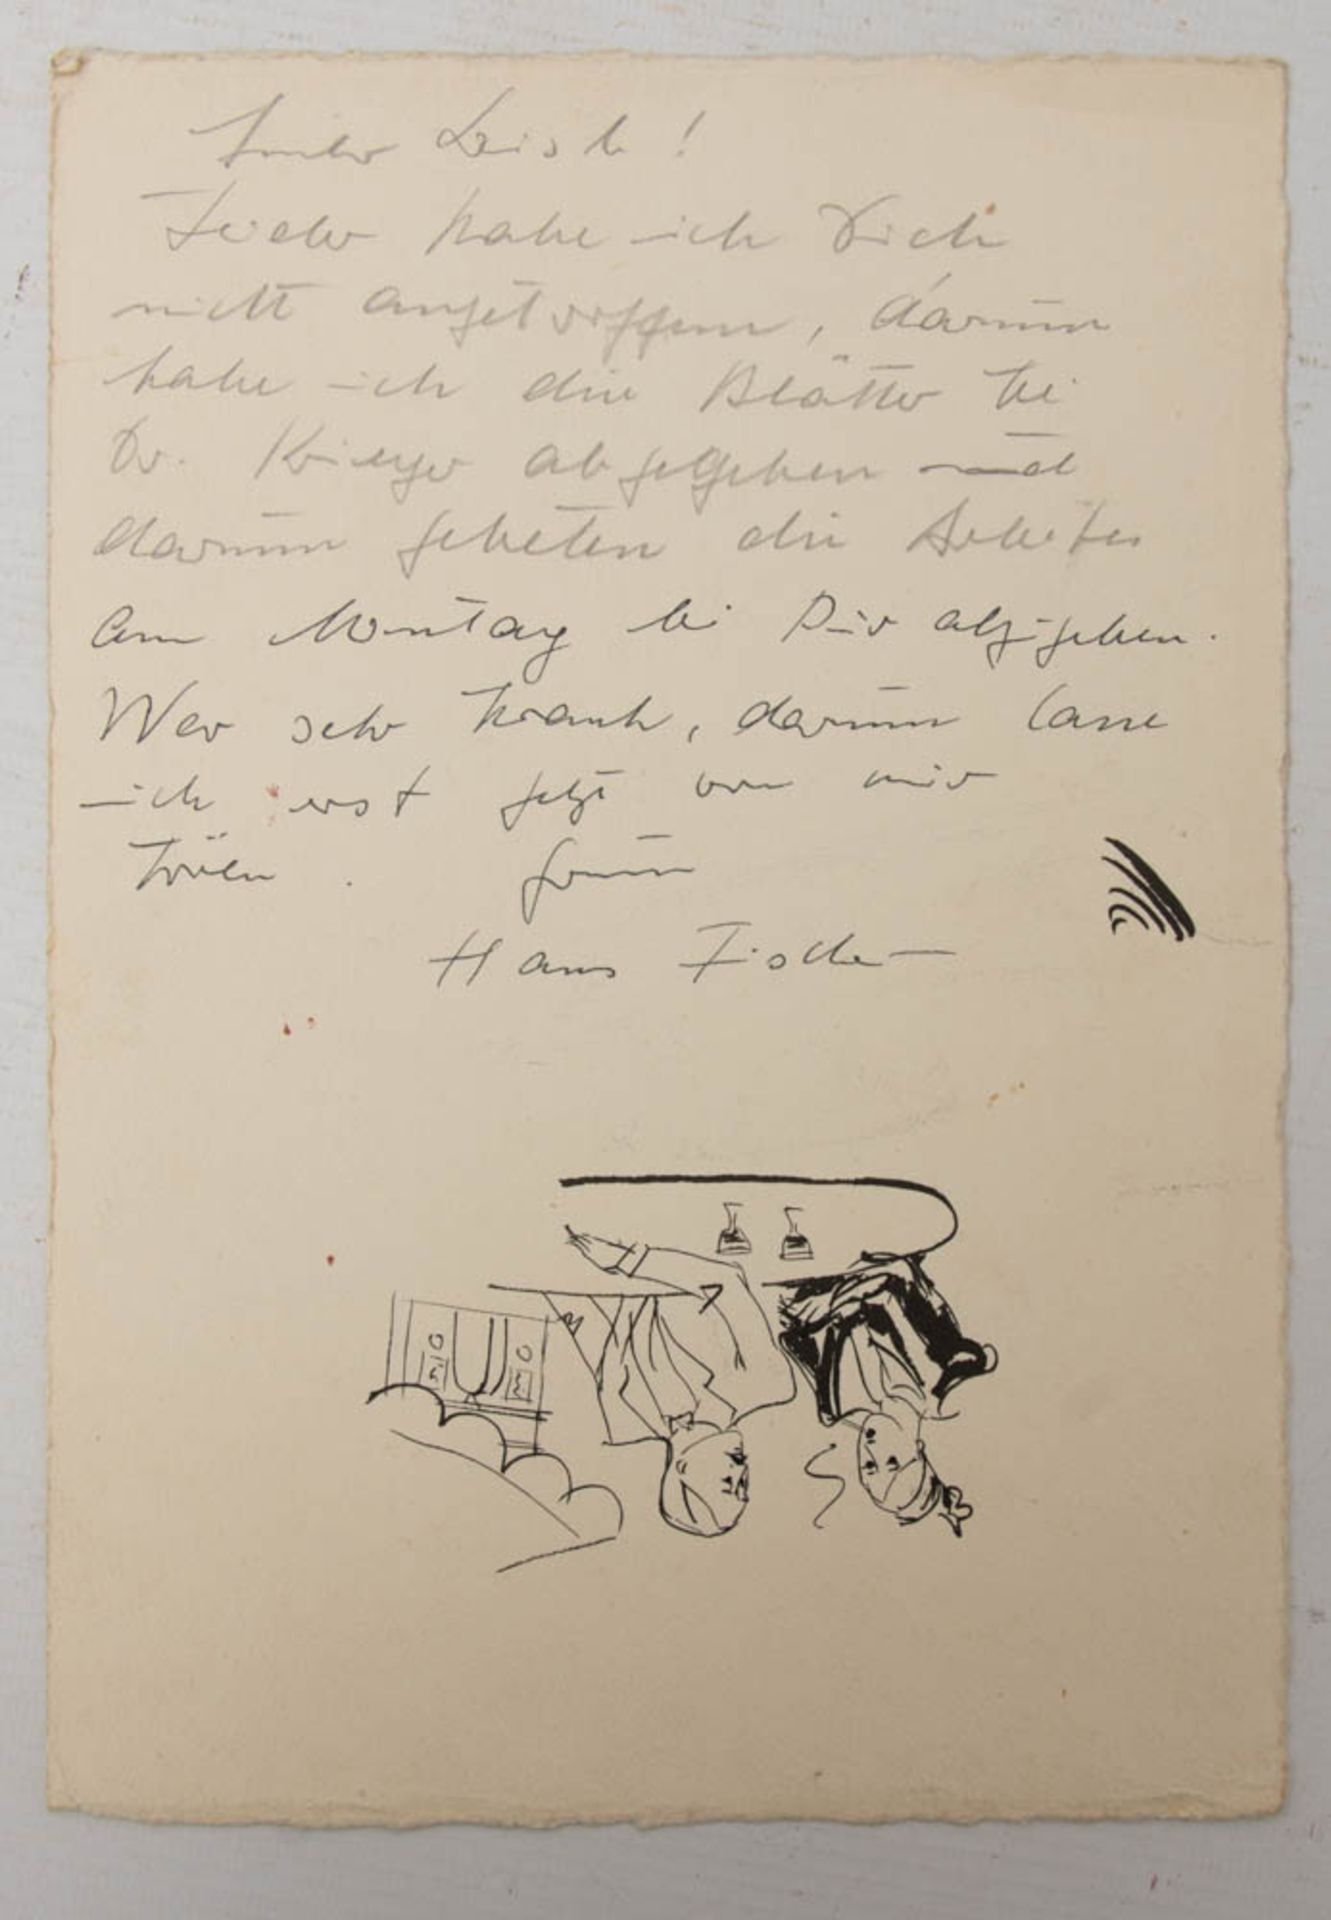 Lieber Leisl!
Leider habe ich Dich
nicht angetroffen, darum
habe ich die Blätter bei
Dr. Krieger abgegeben und
darum gebeten die Arbeiten
am Montag bei Dir abzugeben.
War sehr krank, darum lasse
ich erst jetzt von mir
hören.
Hans Fischer